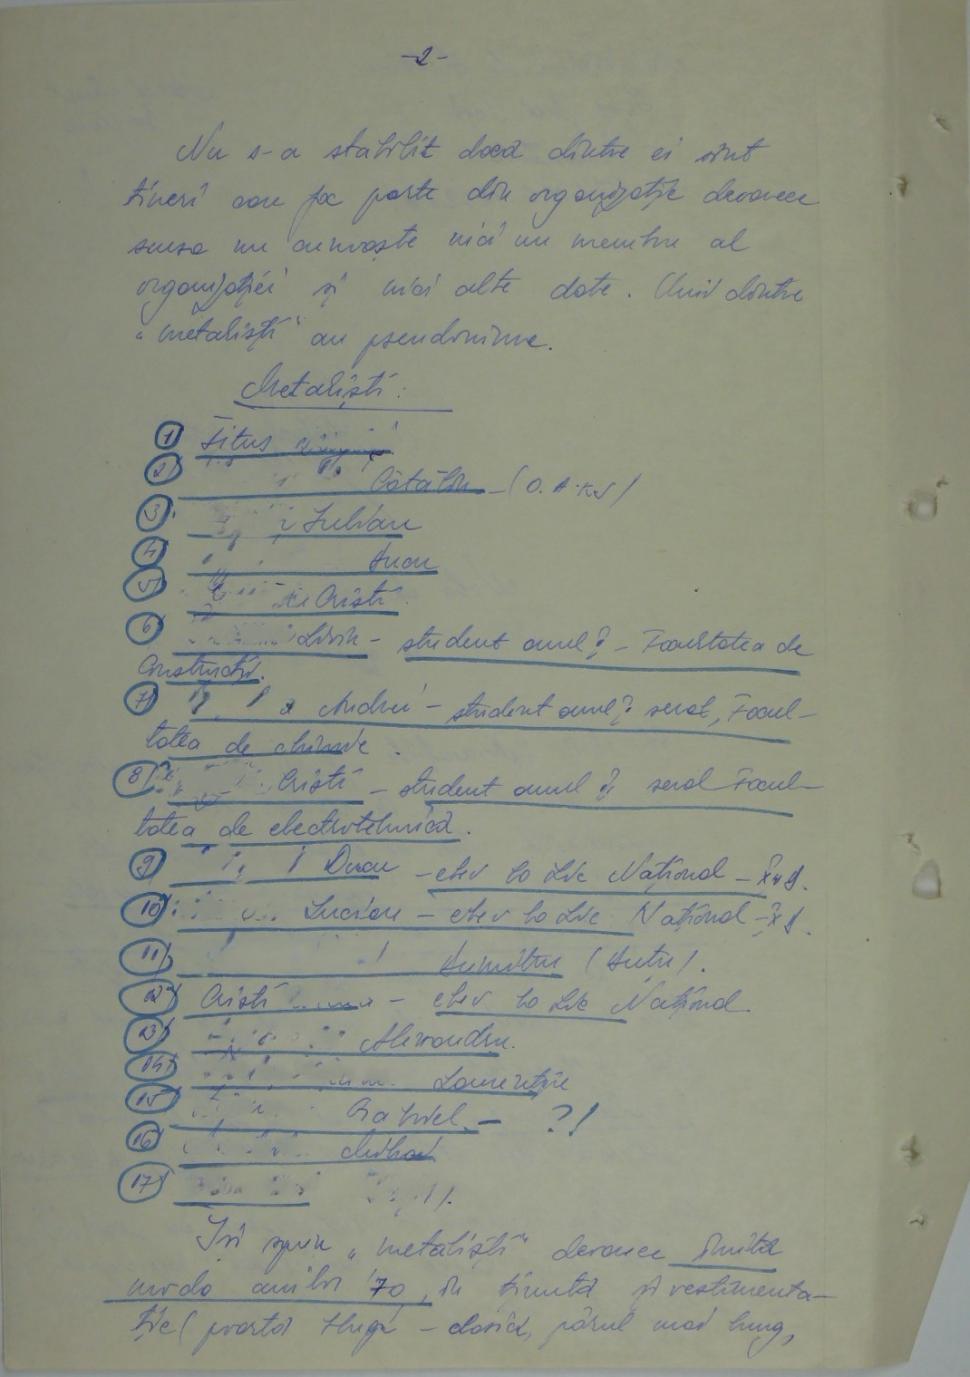 -2-
Nu s-a stabilit dacă dintre ei sînt
tineri care fac parte din organizație deoarece
sursa nu cunoaște nici un membru al
organizației și nici alte date. Unii dintre
"metaliști" au pseudonime.
Metaliști:
1 Titus
2 Cătălin - (O.A.KN)
3 Iulian
4
5 Cristi
6 Liviu - student anul ? - Facultatea de
Construcții.
7 Andrei - student anul ? seral, Facul-
tatea de chimie.
8 Cristi - student anul ? seral Facul-
tatea de electrotehnică.
9 - elev la Lic Național -
10 Lucian - elev la Lic Național -
11 Dumitru
12 Cristi - elev la Lic Național
13 Alexandru.
14 Laurențiu
15 Gabriel - ?!
16 Mihai
17
Își spun "metaliști" deoarece imită
moda anilor '70, în ținută și vestimenta-
ție (poartă blugi - clasici, părul mai lung,